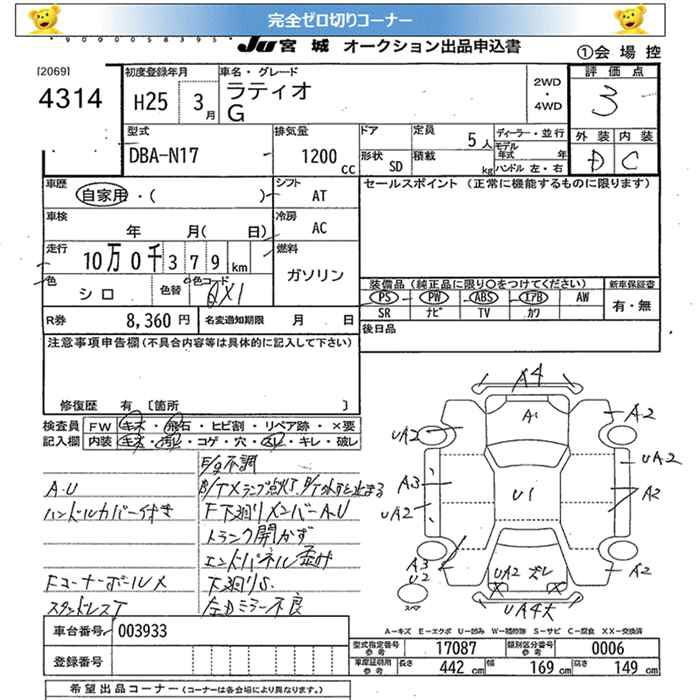 完全ゼロ切りコーナー
JU宮城 オークション出品申込書
①会場控
[2069]
4314
初度登録年月
H25 3月
車名・グレード
ラティオ
G
2WD
・
4WD
評価点
3
型式
DBA-N17
排気量
1200 cc
ドア
形状 SD
定員 5人
積載 kg
ディーラー・並行
モデル年式 年
ハンドル 左・右
外装 内装
D C
車歴 自家用・( )
シフト AT
セールスポイント (正常に機能するものに限ります)
車検 年 月( 日)
冷房 AC
走行 10万0千379km
燃料 ガソリン
色 シロ 色替 色コード QX1
装備品 (純正品に限り○をつけてください)
新車保証書
PS PW ABS エアB AW
SR ナビ TV カワ
有・無
R券 8,360円 名変通知期限 月 日
後日品
注意事項申告欄(不具合内容等は具体的に記入して下さい)
修復歴 有 〔箇所 〕
検査員記入欄
FW キズ・飛石・ヒビ割・リペア跡・×要
内装 キズ・汚れ・コゲ・穴・スレ・キレ・破レ
E/g不調
A.U
B/Tメランプ点灯、B/T外すと止まる
ハンドルカバー付き
F下廻りメンバーA.U
トランク開かず
エンドパネル歪み
Fコーナーポールメ
下廻りS.
スタッドレスT
左Dミラー不良
A4
A1
A2
UA2
A2
UA2
A3
U1
A2
UA2
A3
U2
UA2 ズレ
A2
UA4大
A-キズ E-エクボ U-凹み W-補修跡 S-サビ C-腐食 XX-交換済
車台番号 003933
登録番号
型式指定番号 参考 17087 類別区分番号 参考 0006
車庫証明用 参考 長さ 442 cm 幅 169 cm 高さ 149 cm
希望出品コーナー (コーナーは各会場により異なります。)